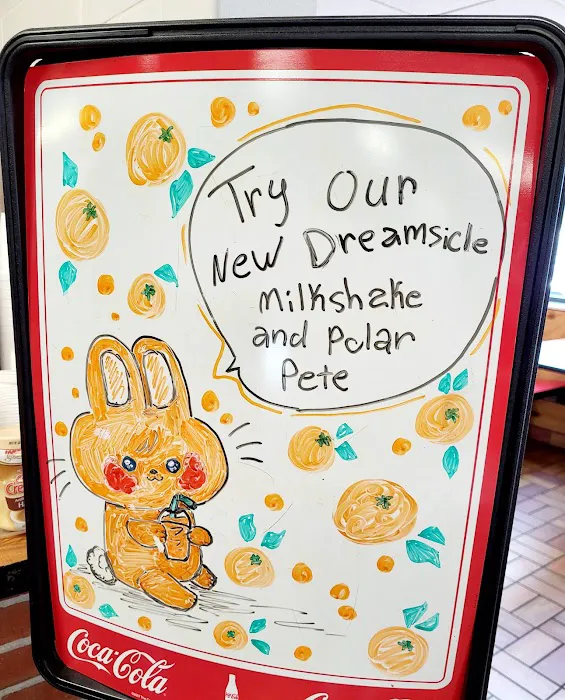 Try Our
New Dreamsicle
Milkshake
and Polar
Pete
Coca-Cola